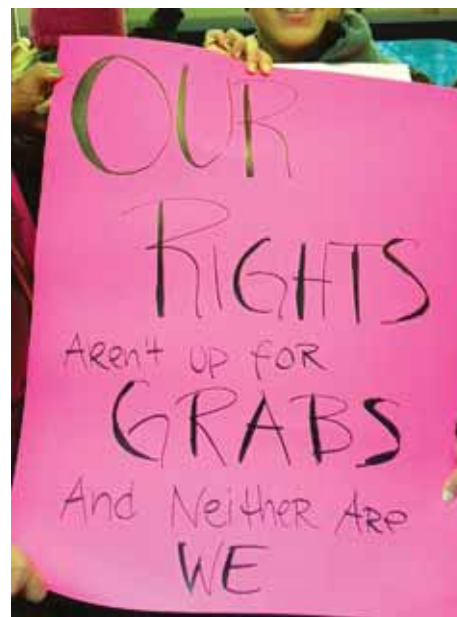 OUR
RIGHTS
AREN't UP FOR
GRABS
And NeitHER ARe
WE